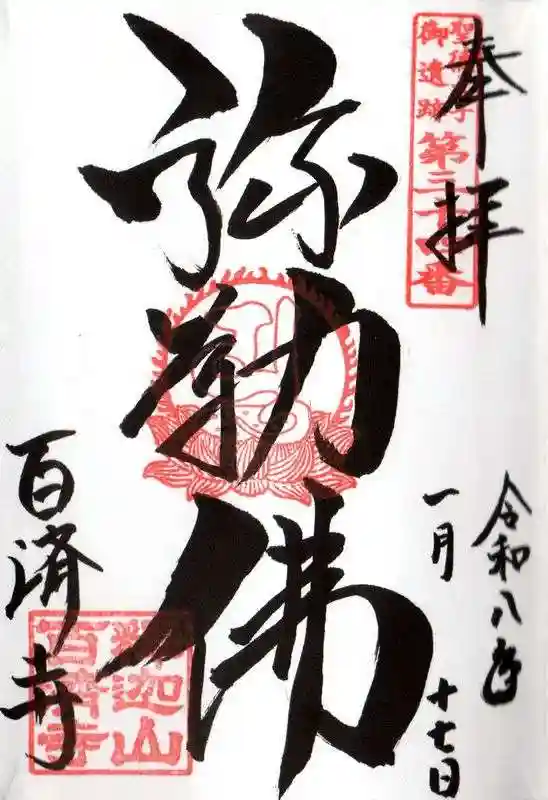 奉拝
聖徳太子
御遺跡
第三十四番
彌勒佛
令和八年
一月
十七日
百済寺
釈迦山
百済寺